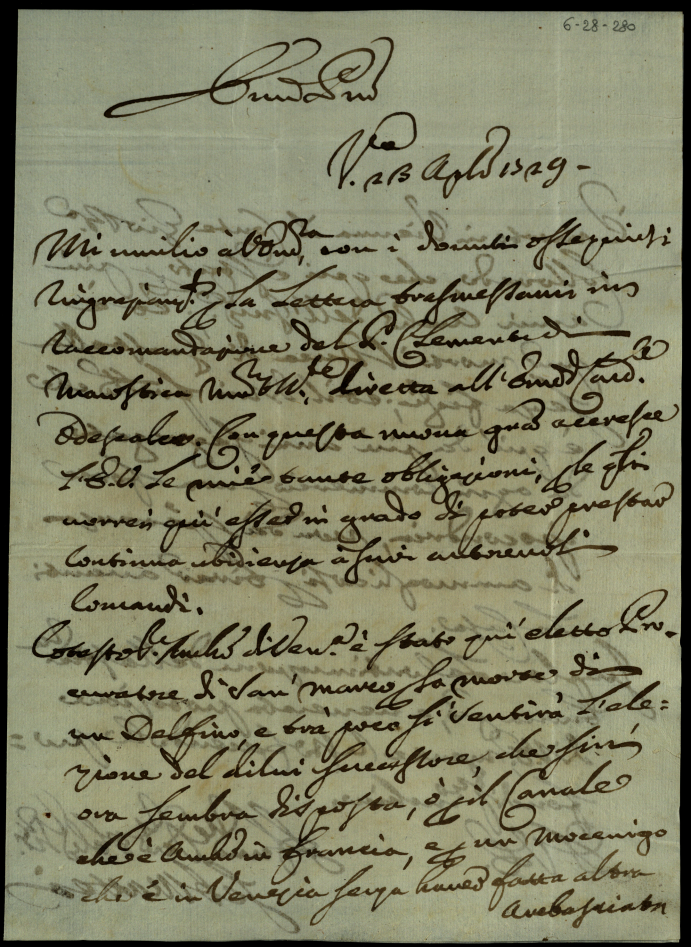 6-28-280
Em̃o Pnẽ
V.ª 23 Aplẽ 1729 –
Mi umilio à V. Em.za con i dovuti ossequiosi
ringraziam.ti p la Lettera trasmessami in
raccomandazione del Sr. Clementi di
Marostica diretta all' Em̃o Card.le
Odescalco. Con questa nuova grã accresce
l'E.V. le mie tante obligazioni, p le qli
vorrei qui esser in grado di poter prestar
continua ubidienza à suoi autorevoli
Comandi.
Cotesto Sr. Ambr di Ven.ª è stato qui eletto Pro-
curatore di San Marco p la morte di
un Delfino, e trà poco si sentirà l'ele=
zione del di lui successore che sin
ora sembra disposta, ò p il Canale
che è Ambr in Francia, e p un Mocenigo
che è in Venezia senza haver fatta altra
Ambasciata